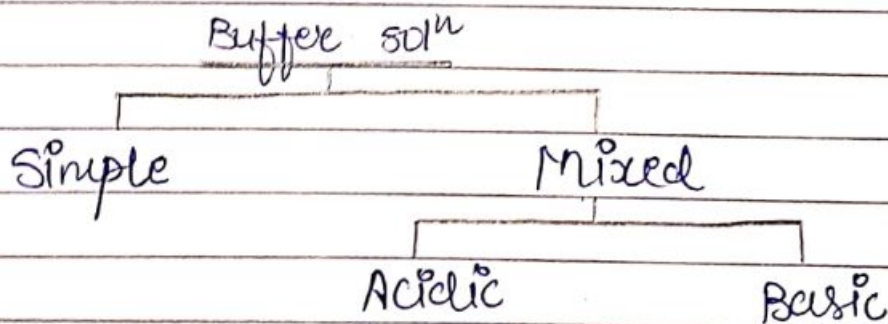 Buffer solⁿ
Simple Mixed
Acidic Basic